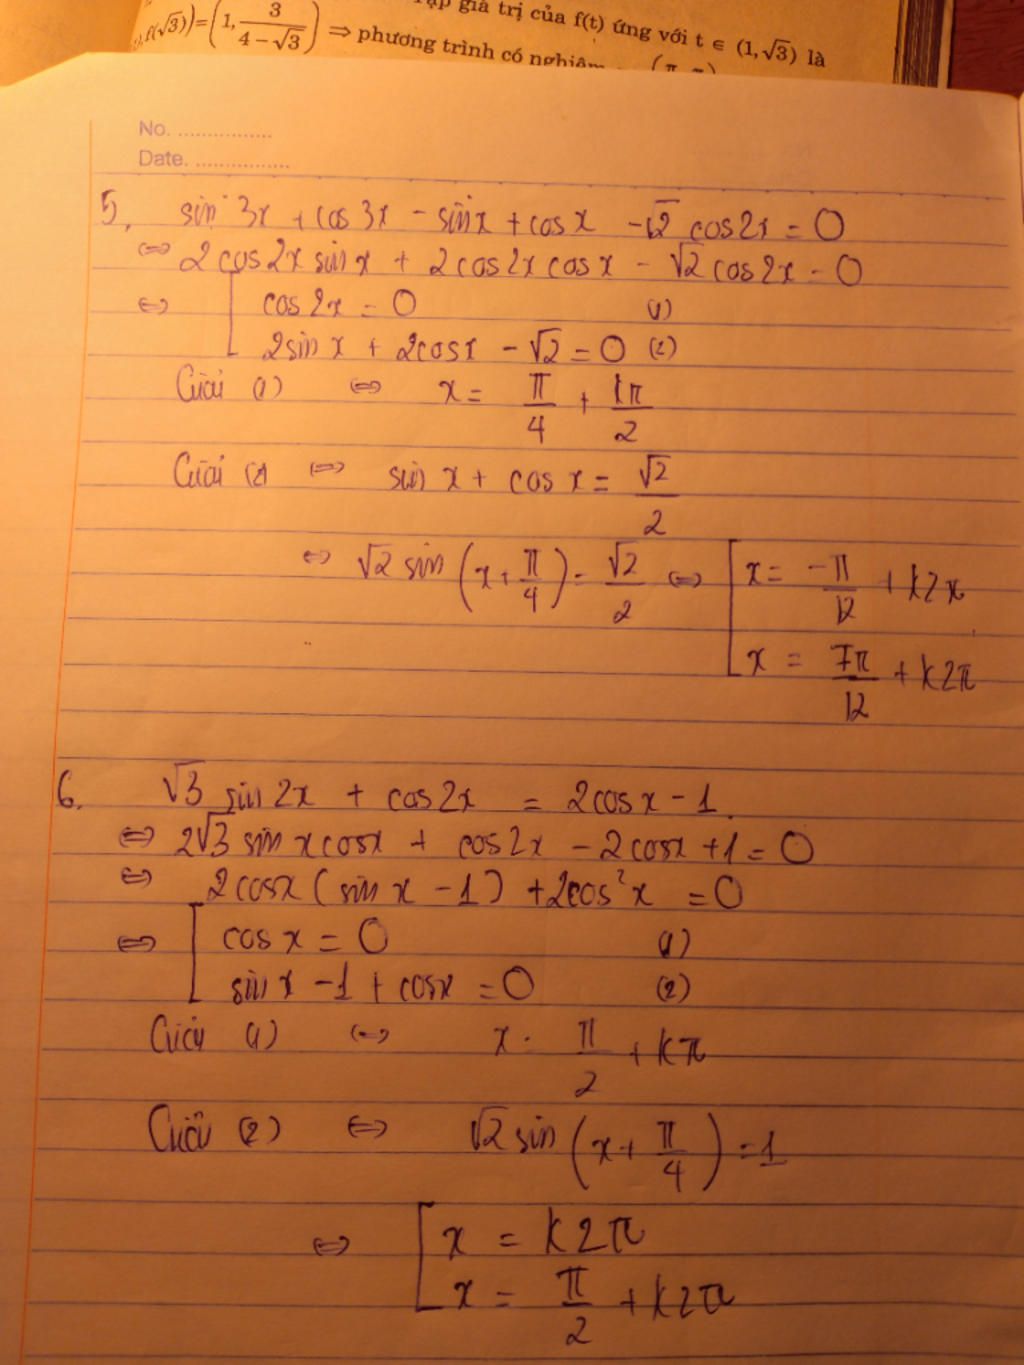 f(√3)) = (1, 3/(4−√3)) ⇒ phương trình có nghiệm
giá trị của f(t) ứng với t ∈ (1, √3) là
No. ................
Date. ................
5, sin 3x + cos 3x − sin x + cos x − √2 cos2x = 0
⇔ 2 cos2x sin x + 2 cos2x cos x − √2 cos2x = 0
⇔ [ cos 2x = 0 (1)
2sin x + 2cosx − √2 = 0 (2)
Giải (1) ⇔ x = π/4 + kπ/2
Giải (2) ⇔ sin x + cos x = √2/2
⇔ √2 sin (x + π/4) = √2/2 ⇔ [ x = −π/12 + k2π
x = 7π/12 + k2π
6. √3 sin 2x + cos 2x = 2cos x − 1.
⇔ 2√3 sin x cosx + cos2x − 2cosx + 1 = 0
⇔ 2cosx (sin x − 1) + 2cos²x = 0
⇔ [ cos x = 0 (1)
sin x − 1 + cosx = 0 (2)
Giải (1) ⇔ x = π/2 + kπ
Giải (2) ⇔ √2 sin (x + π/4) = 1
⇔ [ x = k2π
x = π/2 + k2π